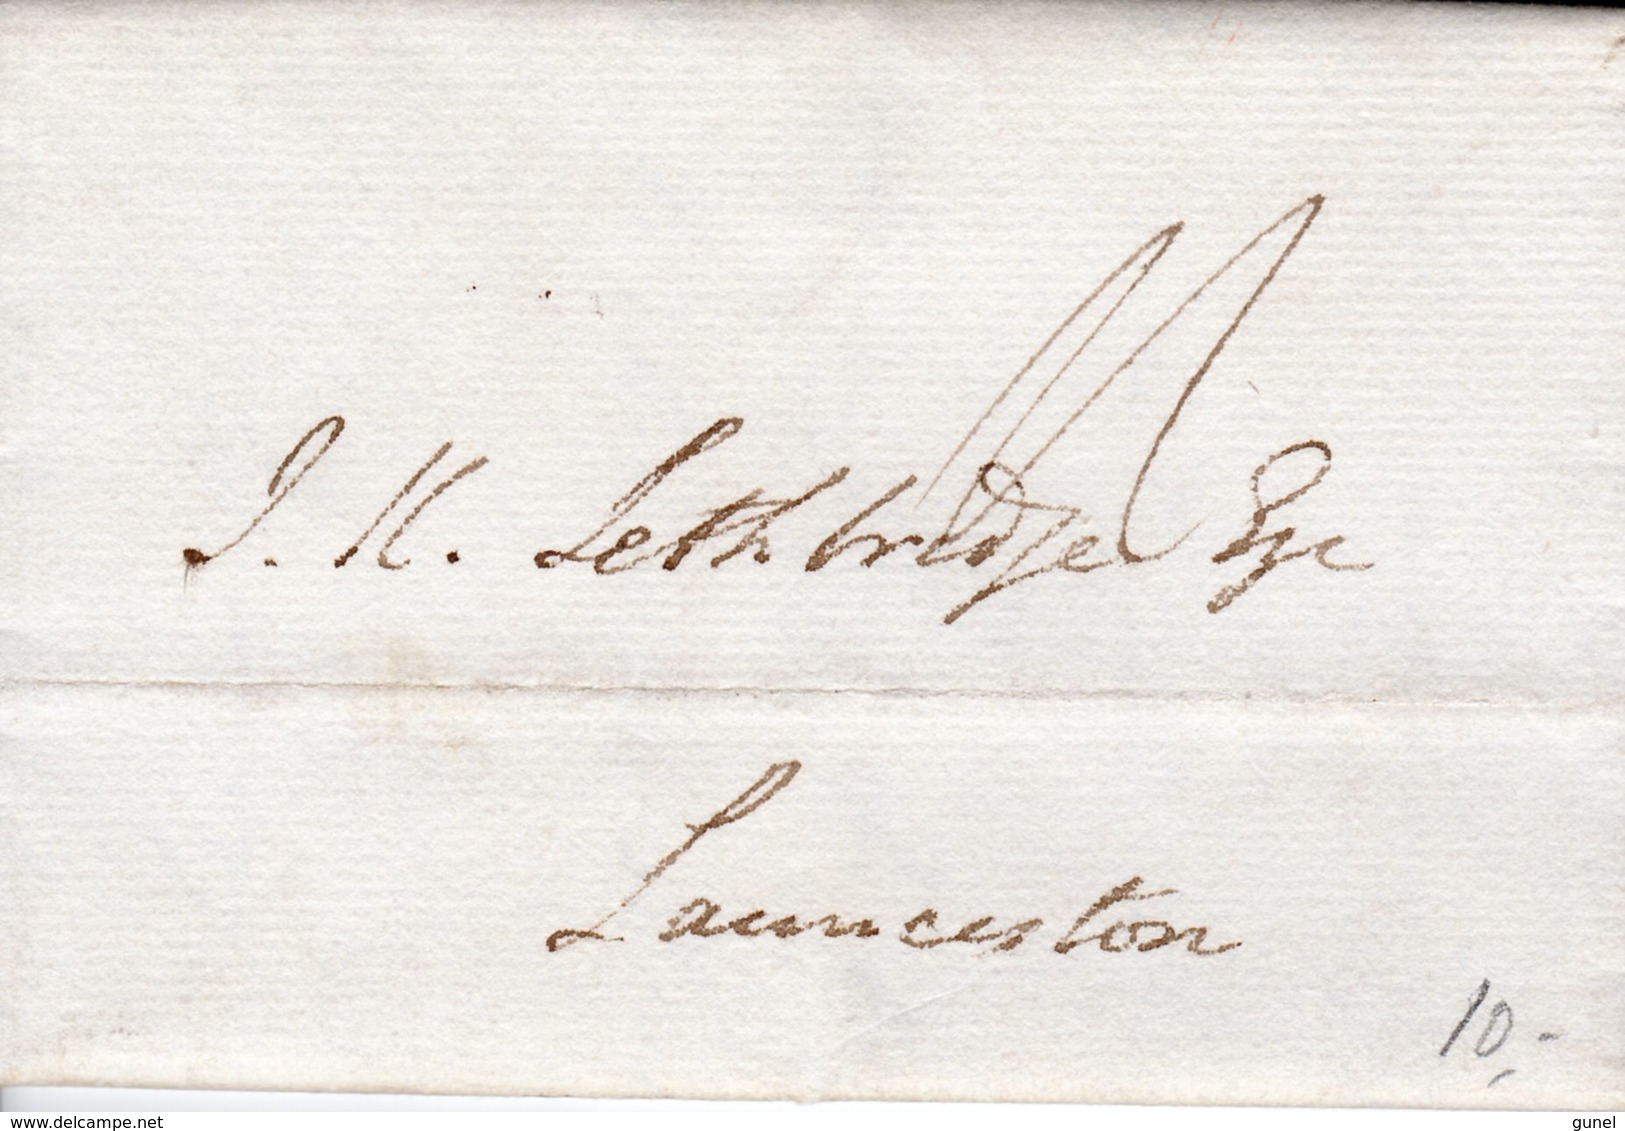 J. K. Lethbridge Esqr
Launceston
10.-
www.delcampe.net
gunel